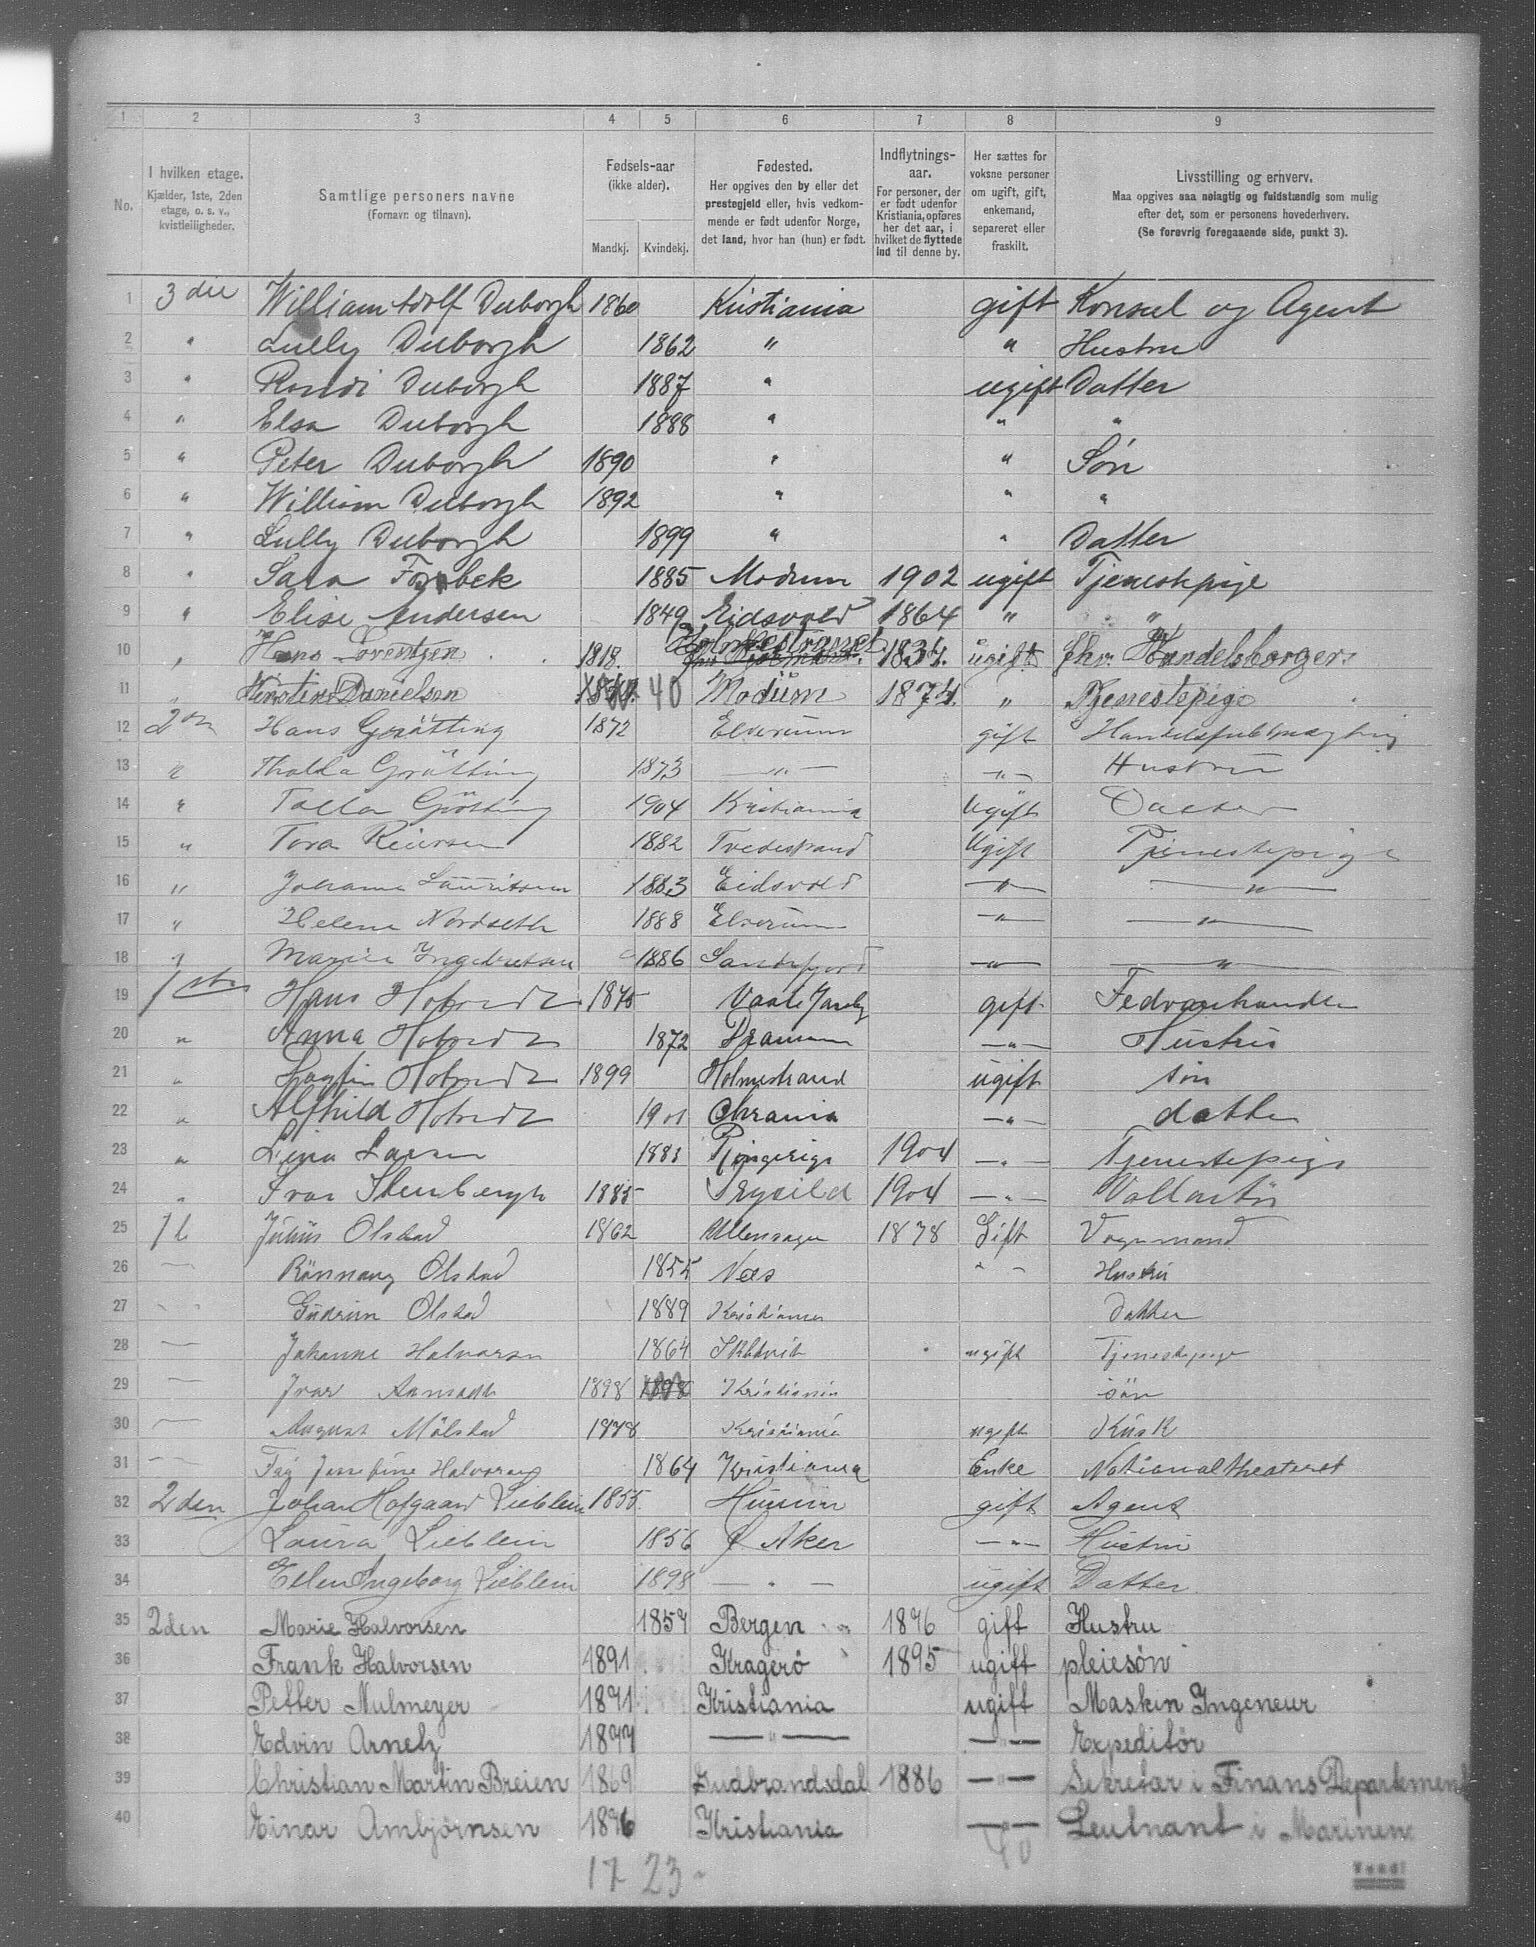 1 2 3 4 5 6 7 8 9
No. I hvilken etage. Kjælder, 1ste, 2den etage, o. s. v., kvistleiligheder. Samtlige personers navne (Fornavn og tilnavn). Fødsels-aar (ikke alder). Mandkj. Kvindekj. Fødested. Her opgives den by eller det prestegjeld eller, hvis vedkommende er født udenfor Norge, det land, hvor han (hun) er født. Indflytnings-aar. For personer, der er født udenfor Kristiania, opføres her det aar, i hvilket de flyttede ind til denne by. Her sættes for voksne personer om ugift, gift, enkemand, separeret eller fraskilt. Livsstilling og erhverv. Maa opgives saa nøiagtig og fuldstændig som mulig efter det, som er personens hovederhverv. (Se forøvrig foregaaende side, punkt 3).
1 3die William Adolf Duborgh 1860 Kristiania gift Konsul og Agent
2 " Lully Duborgh 1862 " " Hustru
3 " Randi Duborgh 1887 " ugift Datter
4 " Elsa Duborgh 1888 " " "
5 " Peter Duborgh 1890 " " Søn
6 " William Duborgh 1892 " " "
7 " Lully Duborgh 1899 " " Datter
8 " Sara Forsbek 1885 Modum 1902 ugift Tjenestepige
9 " Elise Andersen 1849 Eidsvold 1864 " "
10 " Hans Lorentzen 1818. 1834. ugift fhv. Handelsborger
11 " Danielsen 40 Modum 1874. " Tjenestepige
12 2den Hans Grøtting 1872 Elverum gift Handelsfuldmægtig
13 " Grøtting 1873 —"— —"— Hustru
14 " Grøtting 1904 Kristiania Ugift Datter
15 " Tora Reiersen 1882 Tvedestrand Ugift Tjenestepige
16 " Johanna Lauritsen 1883 Eidsvold —"— —"—
17 " Helene Nordseth 1888 Elverum —"— —"—
18 " Marie Ingebretsen 1886 Sandefjord —"— —"—
19 1ste Hans 1875 Vaale Jarlsbg gift Fedvarehandler
20 " Anna 1872 Drammen —"— Hustru
21 " Dagfin 1899 Holmestrand ugift søn
22 " Alfhild 1901 Chrania —"— datter
23 " Lina Larsen 1883 Ringerige 1904 —"— Tjenestepige
24 " Ivar Stenbergh 1885 Trysild 1904 —"— Voluntør
25 1ste Julius Olstad 1862 Ullensager 1878 Gift Vognmand
26 — Rønnaug Olstad 1855 Næs " — Hustru
27 — Gudrun Olstad 1889 Kristiania Datter
28 — Johanne Halvorsen 1864 ugift Tjenestepige
29 — Ivar 1898 1898 Kristiania søn
30 — August Mølstad 1878 Kristiania ugift Kusk
31 — Josefine Halvorsen 1864 Kristiania Enke Nationaltheateret
32 2den Johan Hofgaard Lieblein 1855. Hurum gift Agent
33 Laura Lieblein 1856 Ø Aker —"— Hustru
34 Ellen Ingeborg Lieblein 1898 — " — ugift Datter
35 2den Marie Halvorsen 1857 Bergen 1896 gift Hustru
36 Frank Halvorsen 1891 Kragerö 1895 ugift pleiesön
37 Petter Nulmeyer 1871 Kristiania ugift Maskin Ingeneur
38 Edvin Arnetz 1877 —"— —"— Expeditör
39 Christian Martin Breien 1869 Gudbrandsdal 1886 —"— Sekretær i Finans Departement
40 Einar Ambjörnsen 1876 Kristiania —"— Leutnant i Marinen
17 - 23 - 40
Vend!